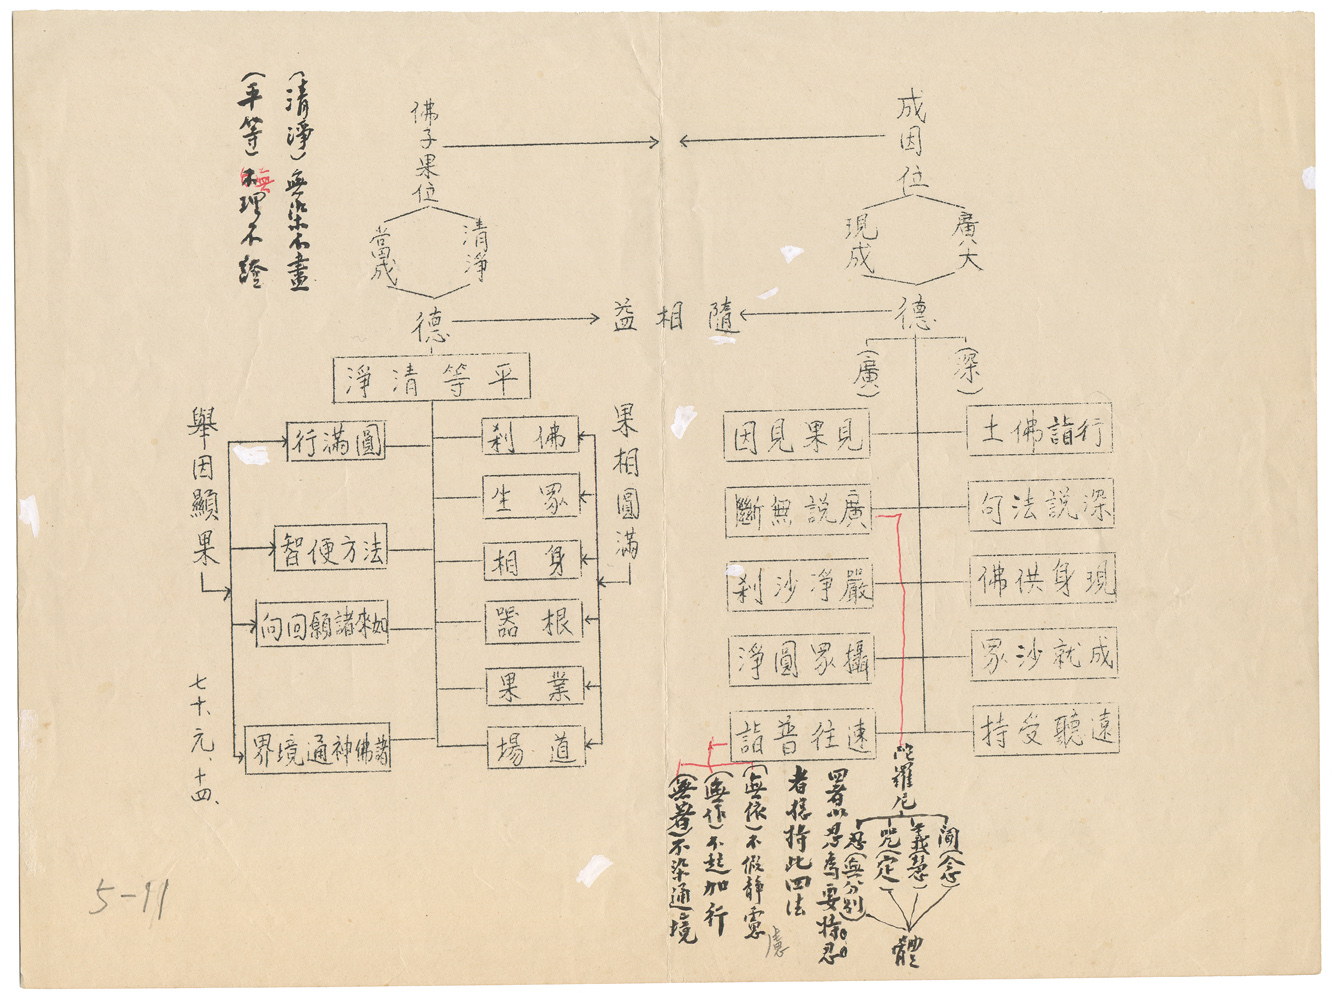 成因位
廣大
現成
德
(深)
(廣)
行詣佛土
深說法句
現身供佛
成就沙眾
遠聽受持
見果見因
廣說無斷
嚴淨沙剎
攝眾圓淨
速往普詣
陀羅尼
聞(念)
義(慧)
咒(定)
忍(無分別)
體
四者以忍為要持忍
者總持此四法
(無依)不假静慮
慮
(無作)不起加行
(無著)不染通境
隨相益
佛子果位
清淨
當成
德
平等清淨
果相圓滿
佛剎
眾生
身相
根器
業果
道場
圓滿行
法方便智
如來諸願回向
諸佛神通境界
舉因顯果
七十、元、十四、
(清淨)無染不盡
(平等)無理不證
5-11